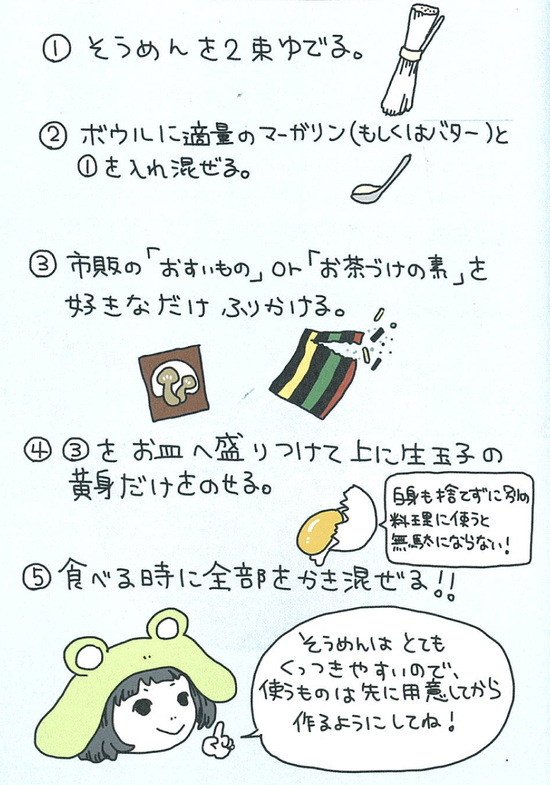 ① そうめんを2束ゆでる。
② ボウルに適量のマーガリン(もしくはバター)と
①を入れ混ぜる。
③ 市販の「おすいもの」or「お茶づけの素」を
好きなだけふりかける。
④ ③をお皿へ盛りつけて上に生玉子の
黄身だけをのせる。
白身も捨てずに別の
料理に使うと
無駄にならない!
⑤ 食べる時に全部をかき混ぜる!!
そうめんはとても
くっつきやすいので、
使うものは先に用意してから
作るようにしてね!